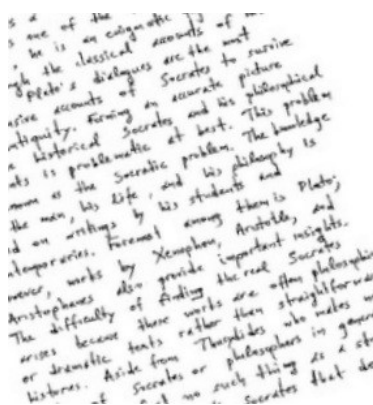 s a
s one of the
, he is an enigmatic
gh the classical accounts of
Plato's dialogues are the most
sive accounts of Socrates to survive
tiquity. Forming an accurate picture
e historical Socrates and his philosophical
nts is problematic at best. This problem
nown as the Socratic problem. The knowledge
the man, his life, and his philosophy is
d on writings by his students and
temporaries. Foremost among them is Plato;
wever, works by Xenophon, Aristotle, and
Aristophanes also provide important insights.
The difficulty of finding the real Socrates
arises because these works are often philosophic
or dramatic texts rather then straightforward
histories. Aside from Thucydides who makes no
of Socrates or philosophers in genera
no such thing as a str
Socrates that de